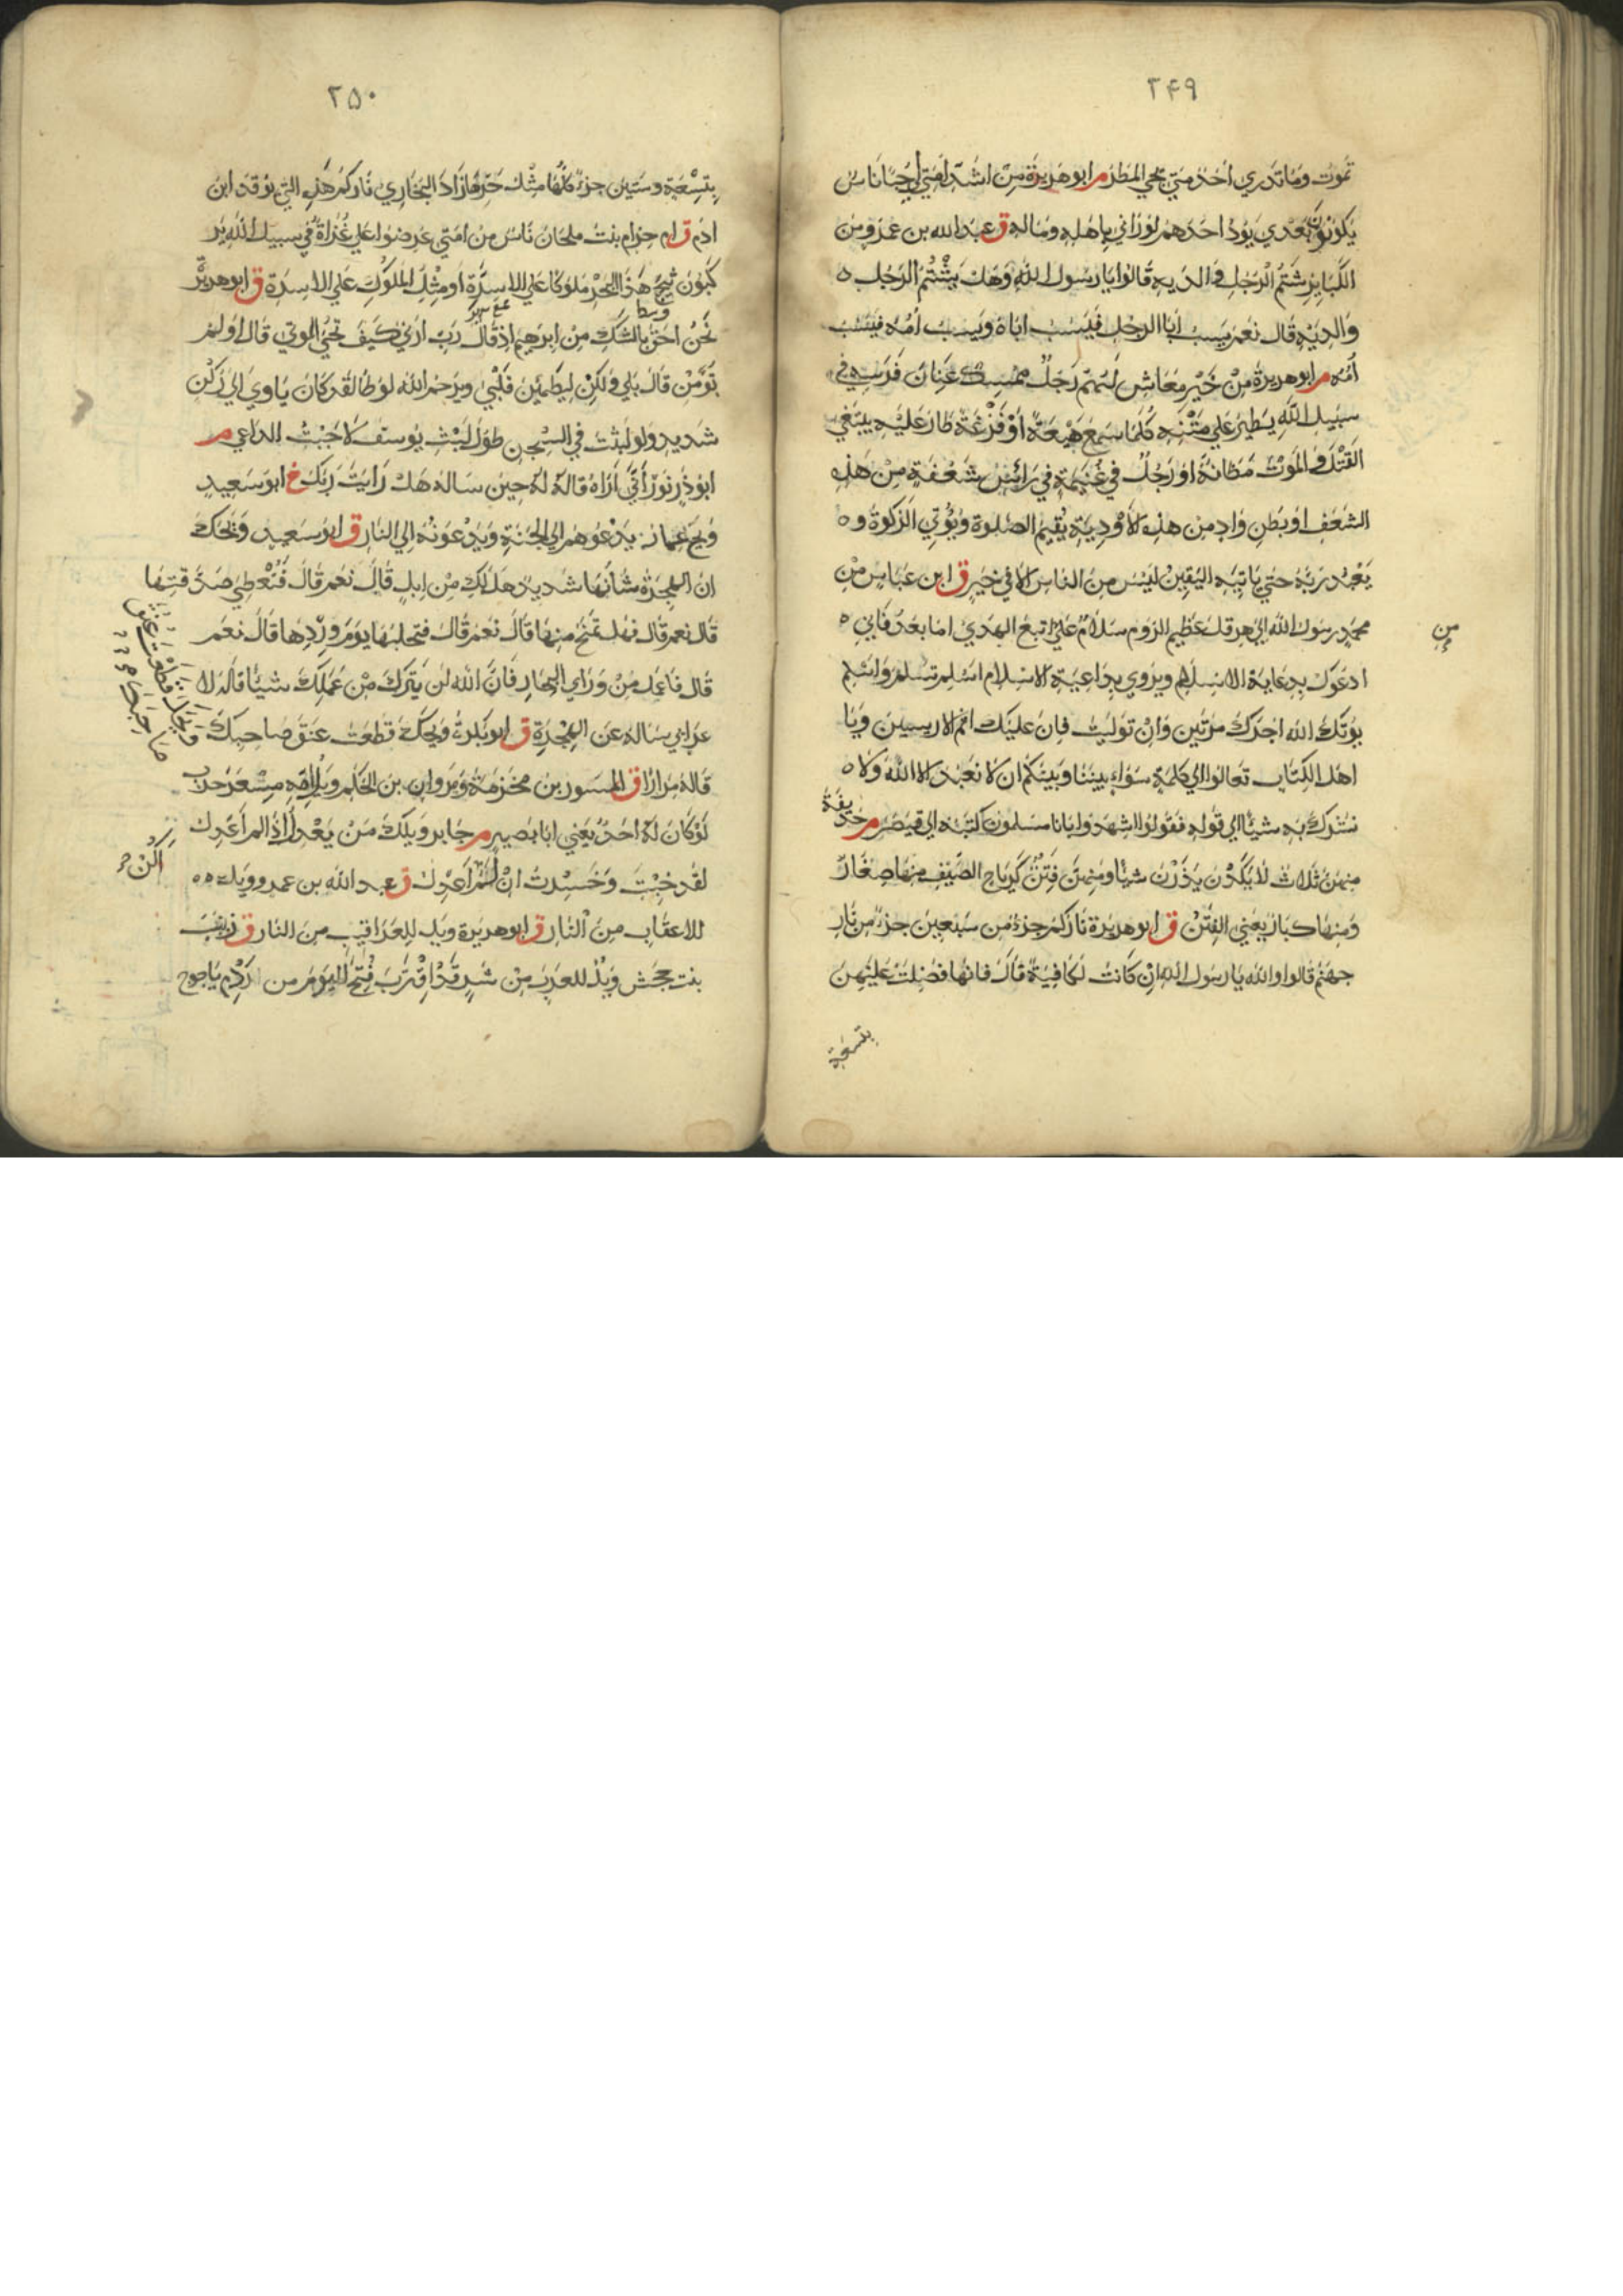 ۲۴۹
تموت وما تدري احد متي يجي المطر م ابو هريرة من اشد امتي لي حبا ناس
يكونون بعدي يود احدهم لو راني باهله وماله ق عبد الله بن عمرو من
الكباير شتم الرجل والديه قالوا يا رسول الله وهل يشتم الرجل ه
والديه قال نعم يسب ابا الرجل فيسب اباه ويسب امه فيسب
امه م ابو هريرة من خير معاش لهم رجل ممسك عنان فرسه في
سبيل الله يطير علي متنه كلما سمع هيعة او فزعة طار عليه يبتغي
القتل والموت مظانه او رجل في غنيمة في رأس شعفة من هذه
الشعف او بطن واد من هذه الاودية يقيم الصلوة ويؤتي الزكوة و ه
يعبد ربه حتي ياتيه اليقين ليس من الناس الا في خير ق ابن عباس من
محمد رسول الله الي هرقل عظيم الروم سلام علي من اتبع الهدي اما بعد فاني ه
من
ادعوك بدعاية الاسلام ويروي بداعية الاسلام اسلم تسلم واسلم
يؤتك الله اجرك مرتين وان توليت فان عليك اثم الاريسيين ويا
اهل الكتاب تعالوا الي كلمة سواء بيننا وبينكم ان لا نعبد الا الله ولا ه
نشرك به شيئا الي قوله فقولوا اشهدوا بانا مسلمون كتبه الي قيصر م حذيفة
منهن ثلاث لا يكدن يذرن شيئا ومنهن فتن كرياح الصيف منها صغار
ومنها كبار يعني الفتن ق ابو هريرة ناركم جزء من سبعين جزء من نار
جهنم قالوا والله يا رسول الله ان كانت لكافية قال فانها فضلت عليهن
بتسعة
۲۵۰
بتسعة وستين جزء كلها مثل حرها زاد البخاري ناركم هذه التي يوقد ابن
ادم ق ام حرام بنت ملحان ناس من امتي عرضوا علي غزاة في سبيل الله ير
كبون ثبج هذا البحر ملوكا علي الاسرة او مثل الملوك علي الاسرة ق ابو هريرة
وسط
نحن احق بالشك من ابرهيم اذ قال رب ارني كيف تحي الموتي قال اولم
تؤمن قال بلي ولكن ليطمئن قلبي ويرحم الله لوطا لقد كان ياوي الي ركن
شديد ولو لبثت في السجن طول لبث يوسف لاجبت الداعي م
ابو ذر نور أني اراه قاله له حين ساله هل رايت ربك خ ابو سعيد
ويح عمار يدعوهم الي الجنة ويدعونه الي النار ق ابو سعيد ويحك
ان الهجرة شانها شديد هل لك من ابل قال نعم قال فتعطي صدقتها
قال نعم قال فهل تمنح منها قال نعم قال فتحلبها يوم وردها قال نعم
قال فاعمل من وراي البحار فان الله لن يترك من عملك شيئا قاله لا
عرابي ساله عن الهجرة ق ابو بكرة ويحك قطعت عنق صاحبك
ويحك قطعت عنق صاحبك
قاله مرارا ق المسور بن مخرمة ومروان بن الحكم ويل امه مسعر حرب
لو كان له احد يعني ابا بصير م جابر ويلك من يعدل اذا لم اعدل
لقد خبت وخسرت ان لم اعدل ق عبد الله بن عمرو ويل ه ه
اكن
للاعقاب من النار ق ابو هريرة ويل للعراقيب من النار ق زينب
بنت جحش ويل للعرب من شر قد اقترب فتح اليوم من ردم ياجوج